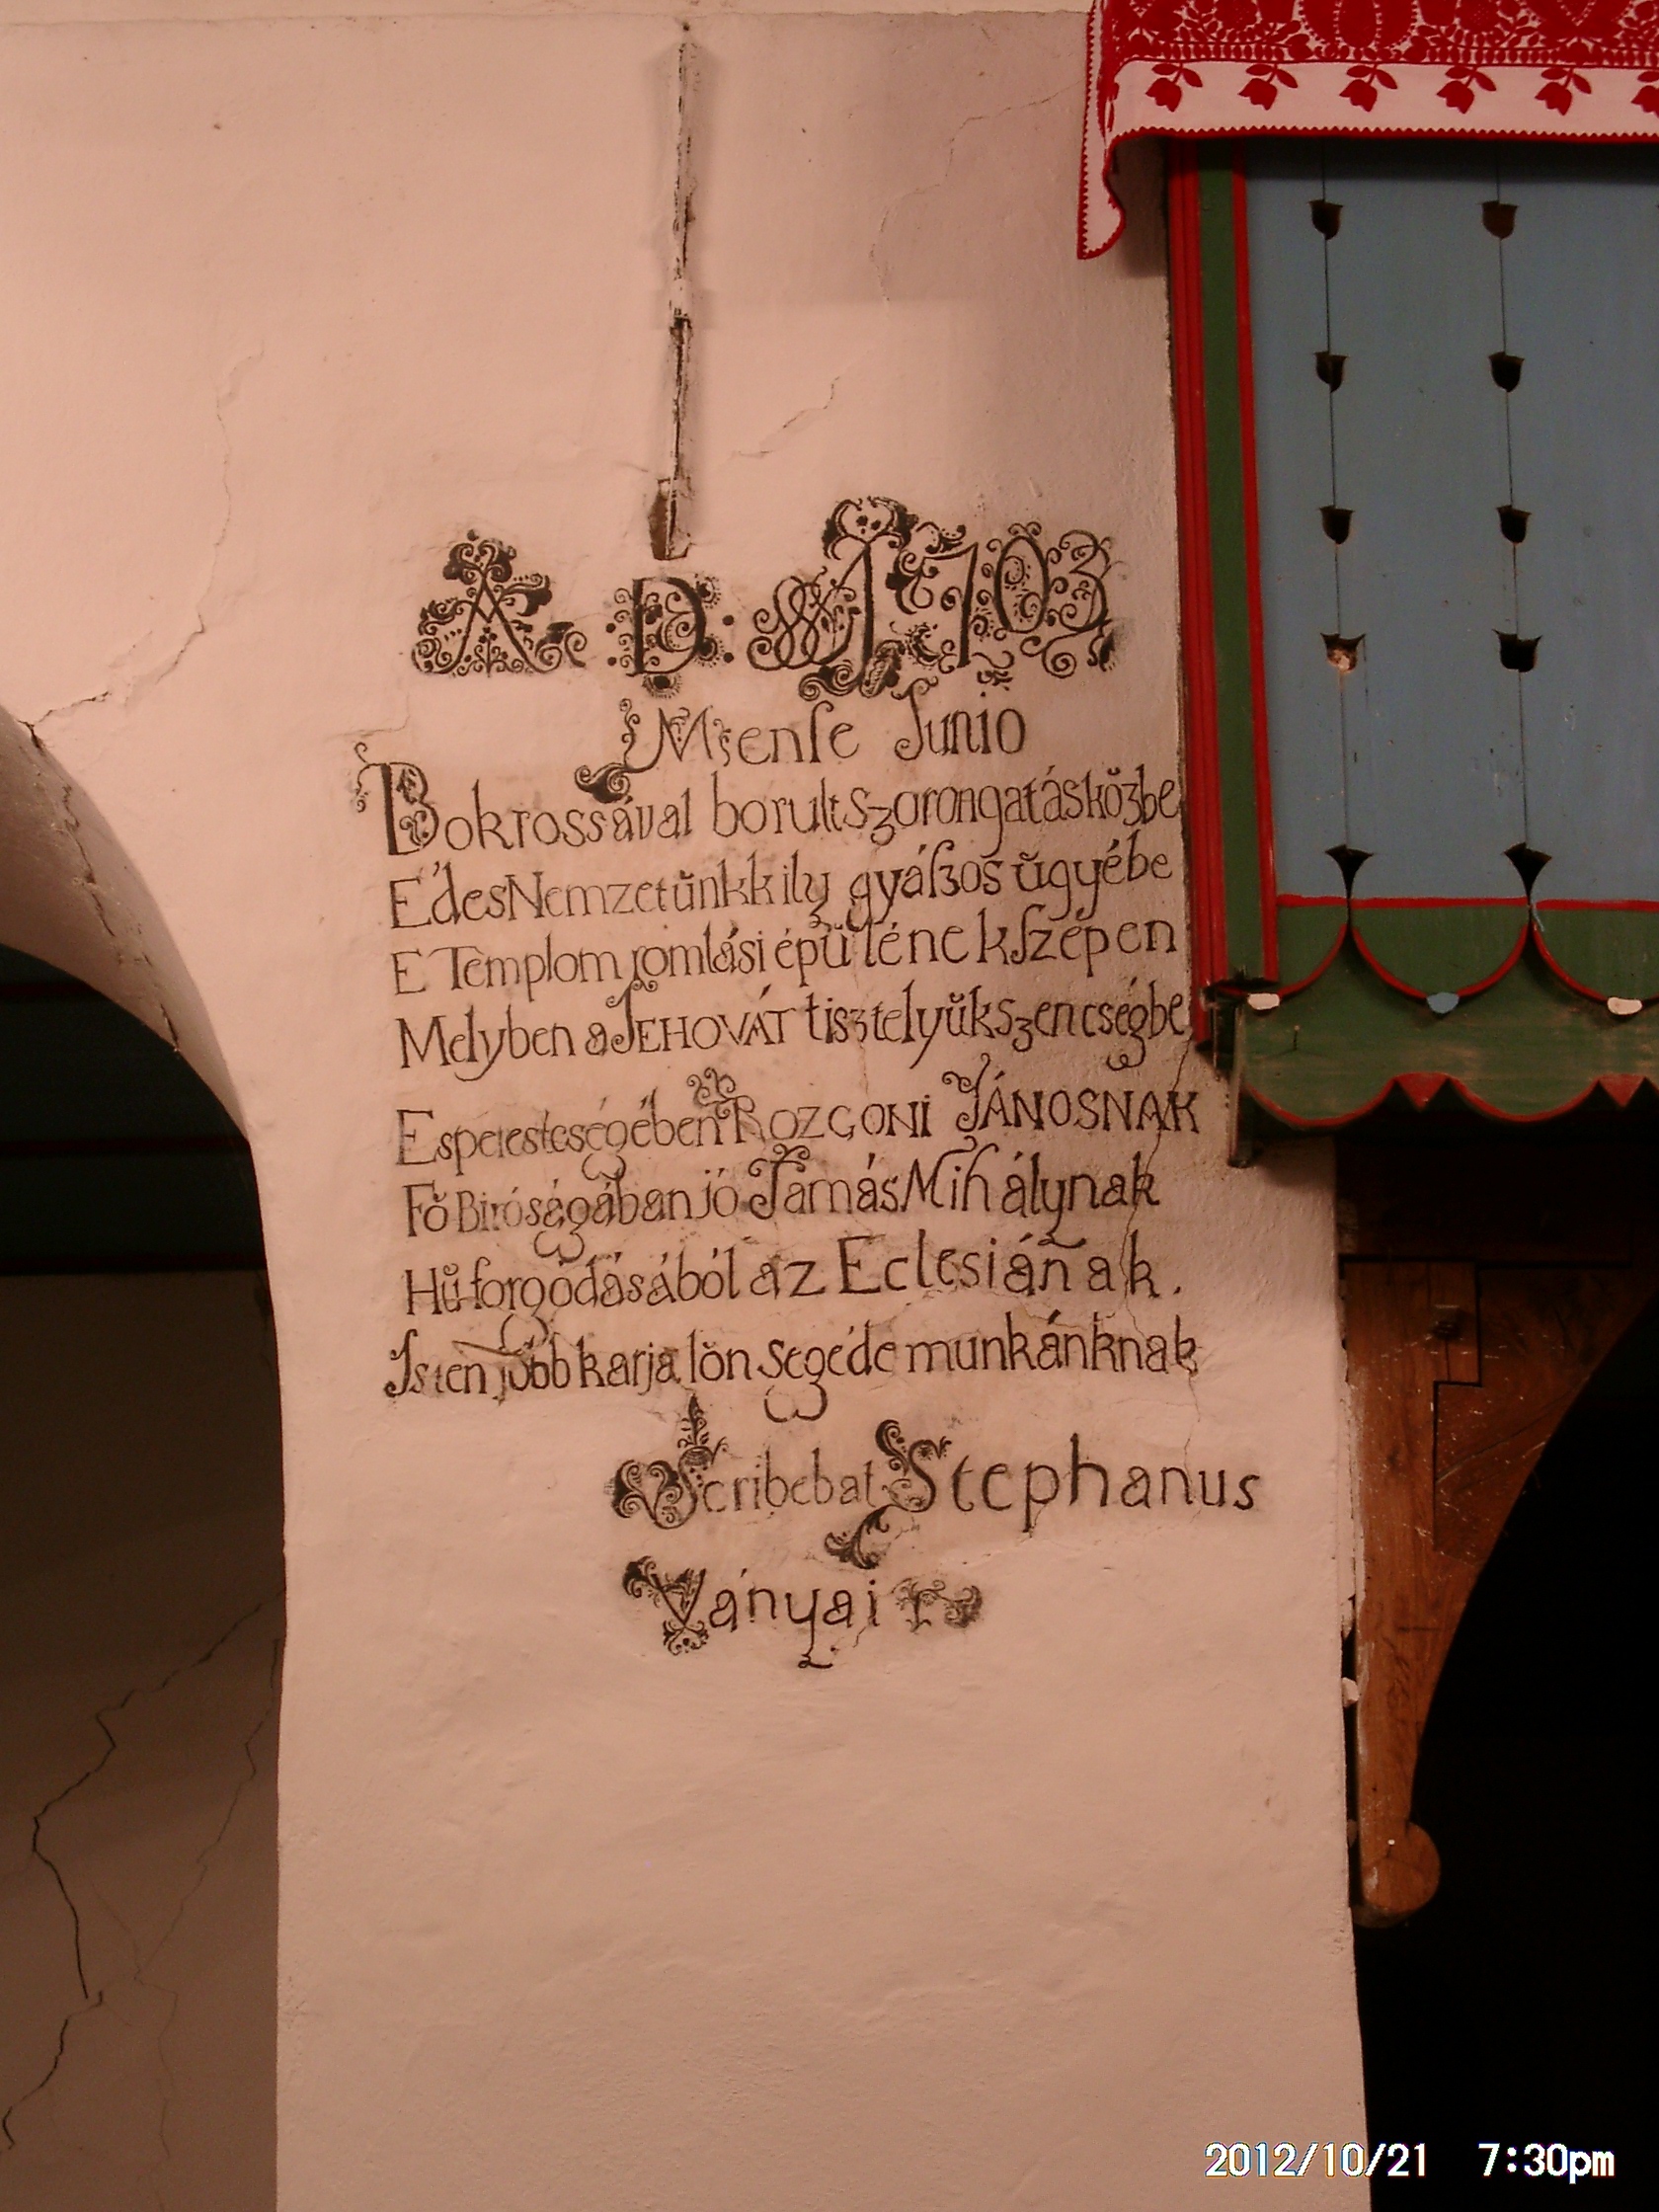 A. D: 1703
Mense Junio
Bokrossával borult szorongatás közbe
Édes Nemzetŭnkk ily gyáſzos ŭgyébe
E Templom romlási épŭlének ſzépen
Melyben a JEHOVÁT tisztelyŭk szencségbe
Esperestcségében ROZGONI JÁNOSNAK
Fŏ Biróságában jó Tamás Mihálynak
Hŭ forgódásából az Eclesiának.
Isten jobb karja lŏn segéde munkánknak
Scribebat Stephanus
Ványai
2012/10/21 7:30pm